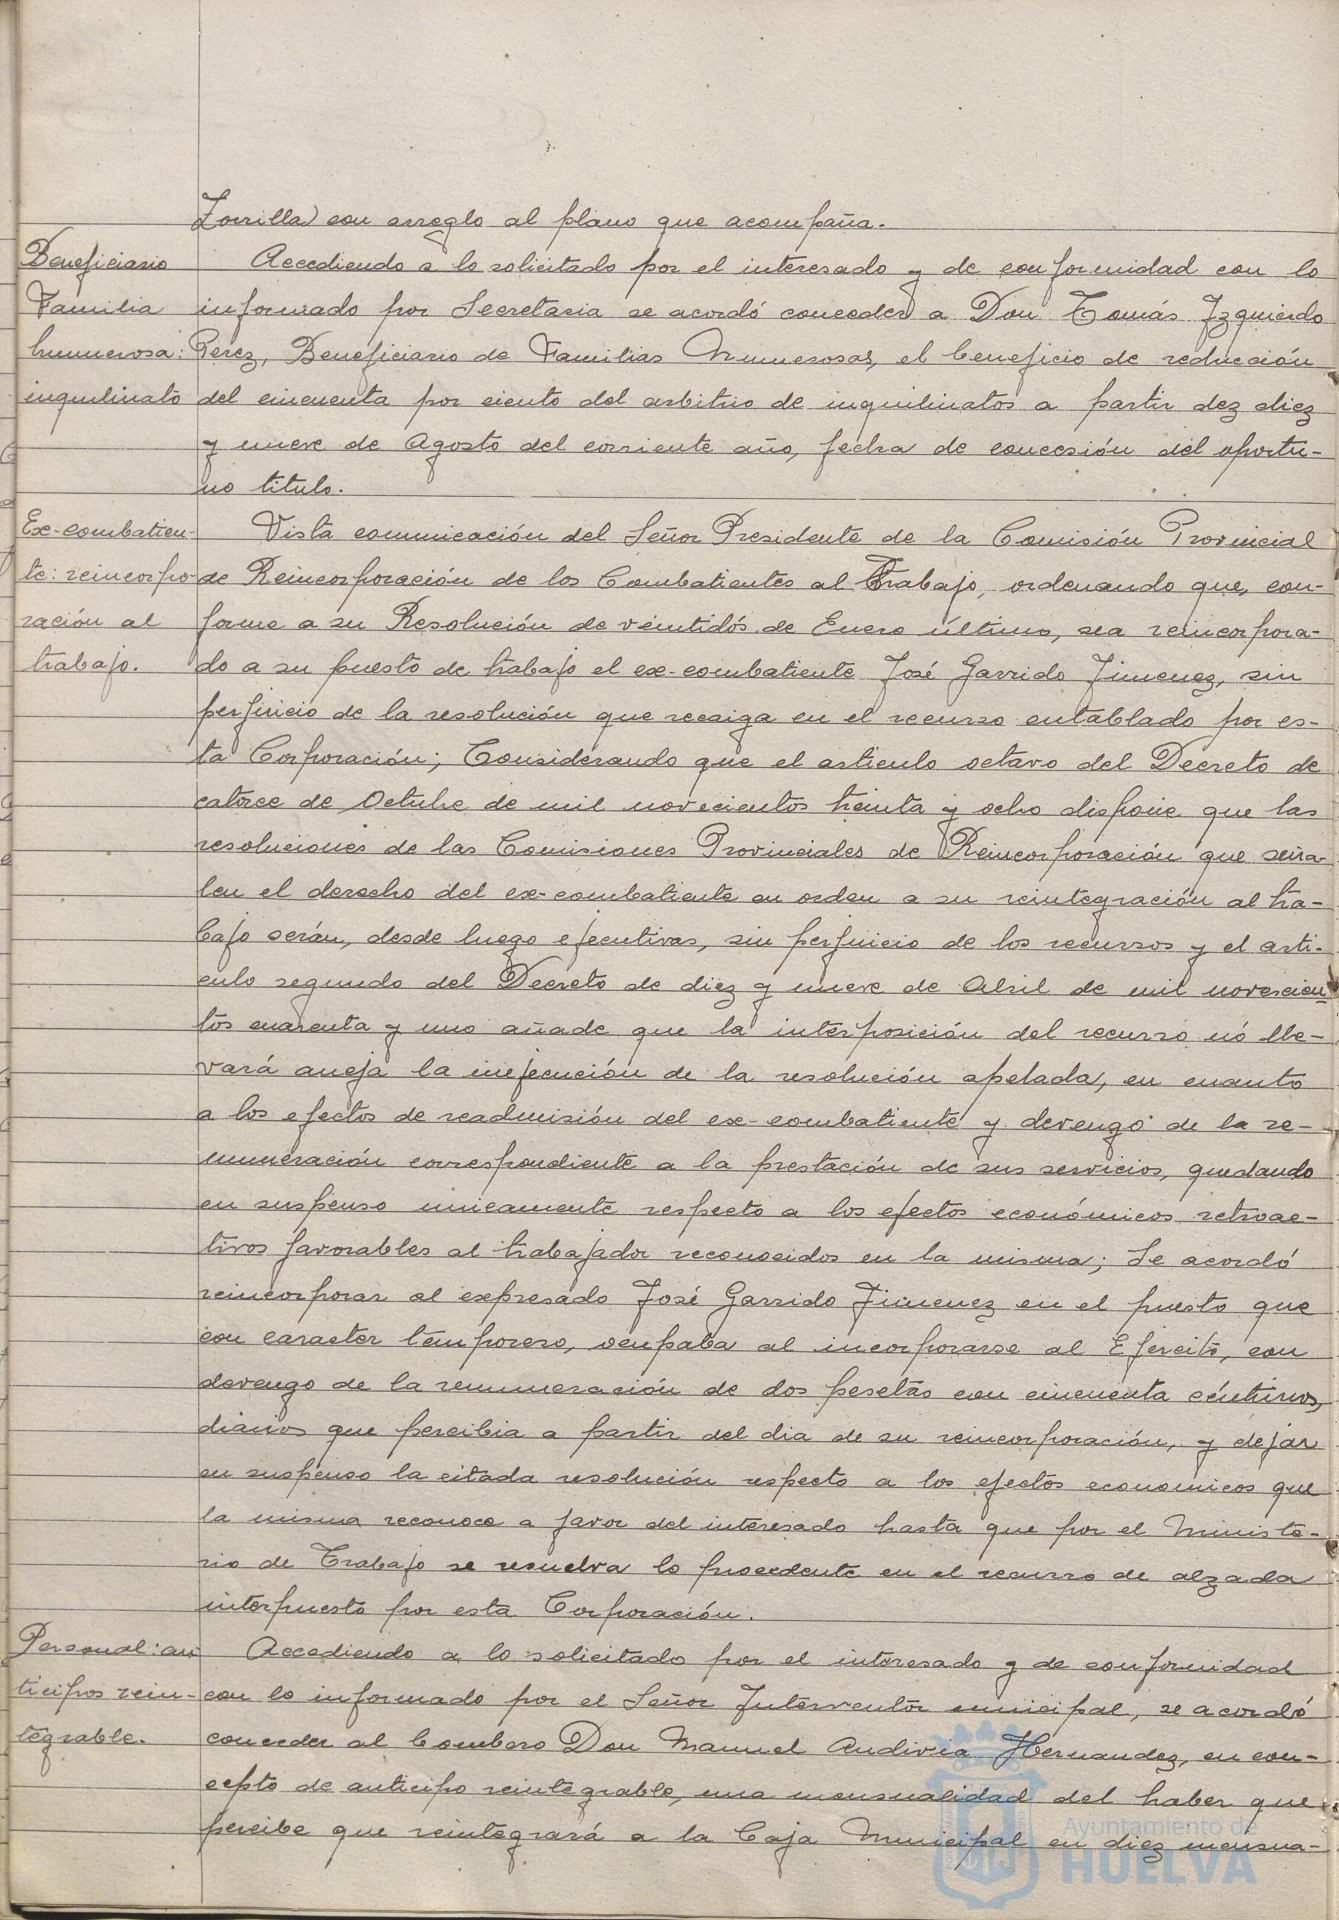 Zorrilla con arreglo al plano que acompaña.
Beneficiario
Familia
humerosa:
inquilinato
Accediendo a lo solicitado por el interesado y de conformidad con lo
informado por Secretaria se acordó conceder a Don Tomás Izquierdo
Perez, Beneficiario de Familias Numerosas, el beneficio de reducción
del cincuenta por ciento del arbitrio de inquilinatos a partir dez diez
y nueve de Agosto del corriente año, fecha de concesión del oportu-
no titulo.
Ex-combatien-
te: reincorpo-
ración al
trabajo.
Vista comunicación del Señor Presidente de la Comisión Provincial
de Reincorporación de los Combatientes al Trabajo, ordenando que, con-
forme a su Resolución de veintidós de Enero último, sea reincorpora-
do a su puesto de trabajo el ex-combatiente José Garrido Jimenez, sin
perjuicio de la resolución que recaiga en el recurso entablado por es-
ta Corporación; Considerando que el articulo octavo del Decreto de
catorce de Octubre de mil novecientos treinta y ocho dispone que las
resoluciones de las Comisiones Provinciales de Reincorporación que seña-
len el derecho del ex-combatiente en orden a su reintegración al tra-
bajo serán, desde luego ejecutivas, sin perjuicio de los recursos y el arti-
culo segundo del Decreto de diez y nueve de Abril de mil novecien-
tos cuarenta y uno añade que la interposición del recurso nó lle-
vará aneja la inejecución de la resolución apelada, en cuanto
a los efectos de readmisión del ex-combatiente y devengo de la re-
muneración correspondiente a la prestación de sus servicios, quedando
en suspenso unicamente respecto a los efectos económicos retroac-
tivos favorables al trabajador reconocidos en la misma; Se acordó
reincorporar al expresado José Garrido Jimenez en el puesto que
con caracter temporero, ocupaba al incorporarse al Ejército, con
devengo de la remuneración de dos pesetas con cincuenta céntimos,
diarios que percibia a partir del dia de su reincorporación, y dejar
en suspenso la citada resolución respecto a los efectos economicos que
la misma reconoce a favor del interesado hasta que por el Ministe-
rio de Trabajo se resuelva lo procedente en el recurso de alzada
interpuesto por esta Corporación.
Personal: an-
ticipos rein-
tegrable.
Accediendo a lo solicitado por el interesado y de conformidad
con lo informado por el Señor Interventor municipal, se acordó
conceder al bombero Don Manuel Andivia Hernandez, en con-
cepto de anticipo reintegrable, una mensualidad del haber que
percibe que reintegrará a la Caja Municipal en diez mensua-
Ayuntamiento de
HUELVA